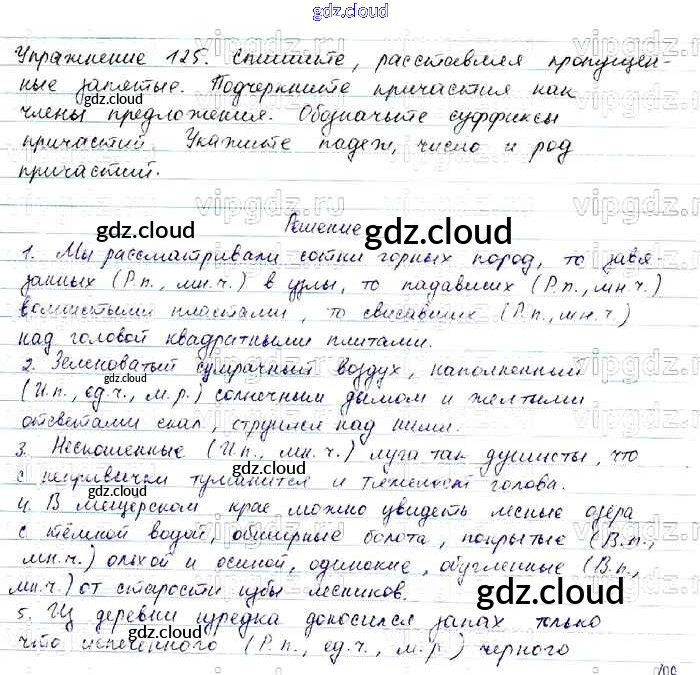 gdz.cloud
Упражнение 125. Спишите, расставляя пропущен-
ные запятые. Подчеркните причастия как
члены предложения. Обозначьте суффиксы
причастий. Укажите падеж, число и род
причастий.
Решение
1. Мы рассматривали сотни горных пород, то завя-
занных (Р.п., мн.ч.) в узлы, то падавших (Р.п., мн.ч.)
волнистыми пластами, то свисавших (Р.п., мн.ч.)
над головой квадратными плитами.
2. Зеленоватый сумрачный воздух, наполненный
(И.п., ед.ч., м.р.) солнечным дымом и желтыми
отсветами скал, струился над ними.
3. Нескошенные (И.п., мн.ч.) луга так душисты, что
с непривычки туманится и тяжелеет голова.
4. В Мещерском крае можно увидеть лесные озёра
с тёмной водой, обширные болота, покрытые (В.п.,
мн.ч.) ольхой и осиной, одинокие, обугленные (В.п.,
мн.ч.) от старости избы лесников.
5. Из деревни изредка доносился запах только
что испеченного (Р.п., ед.ч., м.р.) черного